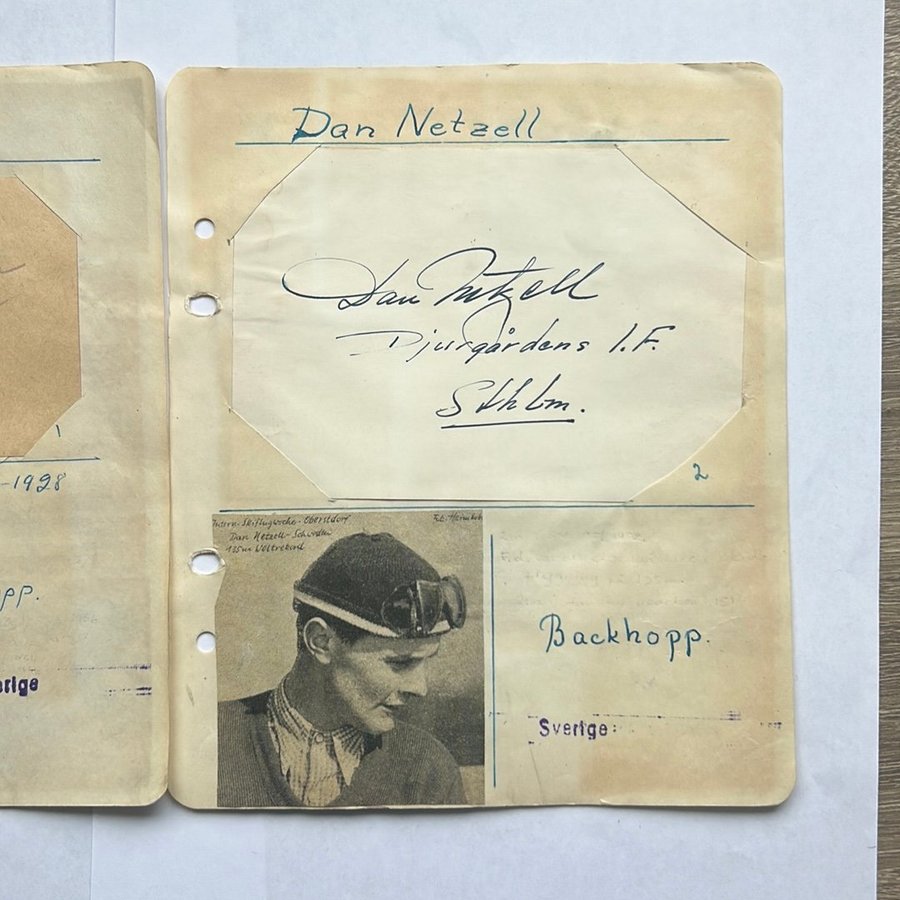 -1928
pp.
erige
Dan Netzell
Dan Netzell
Djurgårdens I.F.
Sthlm.
2
Intern. Skiflugwoche - Oberstdorf
Dan Netzell - Schweden
135m Weltrekord
Backhopp.
Sverige